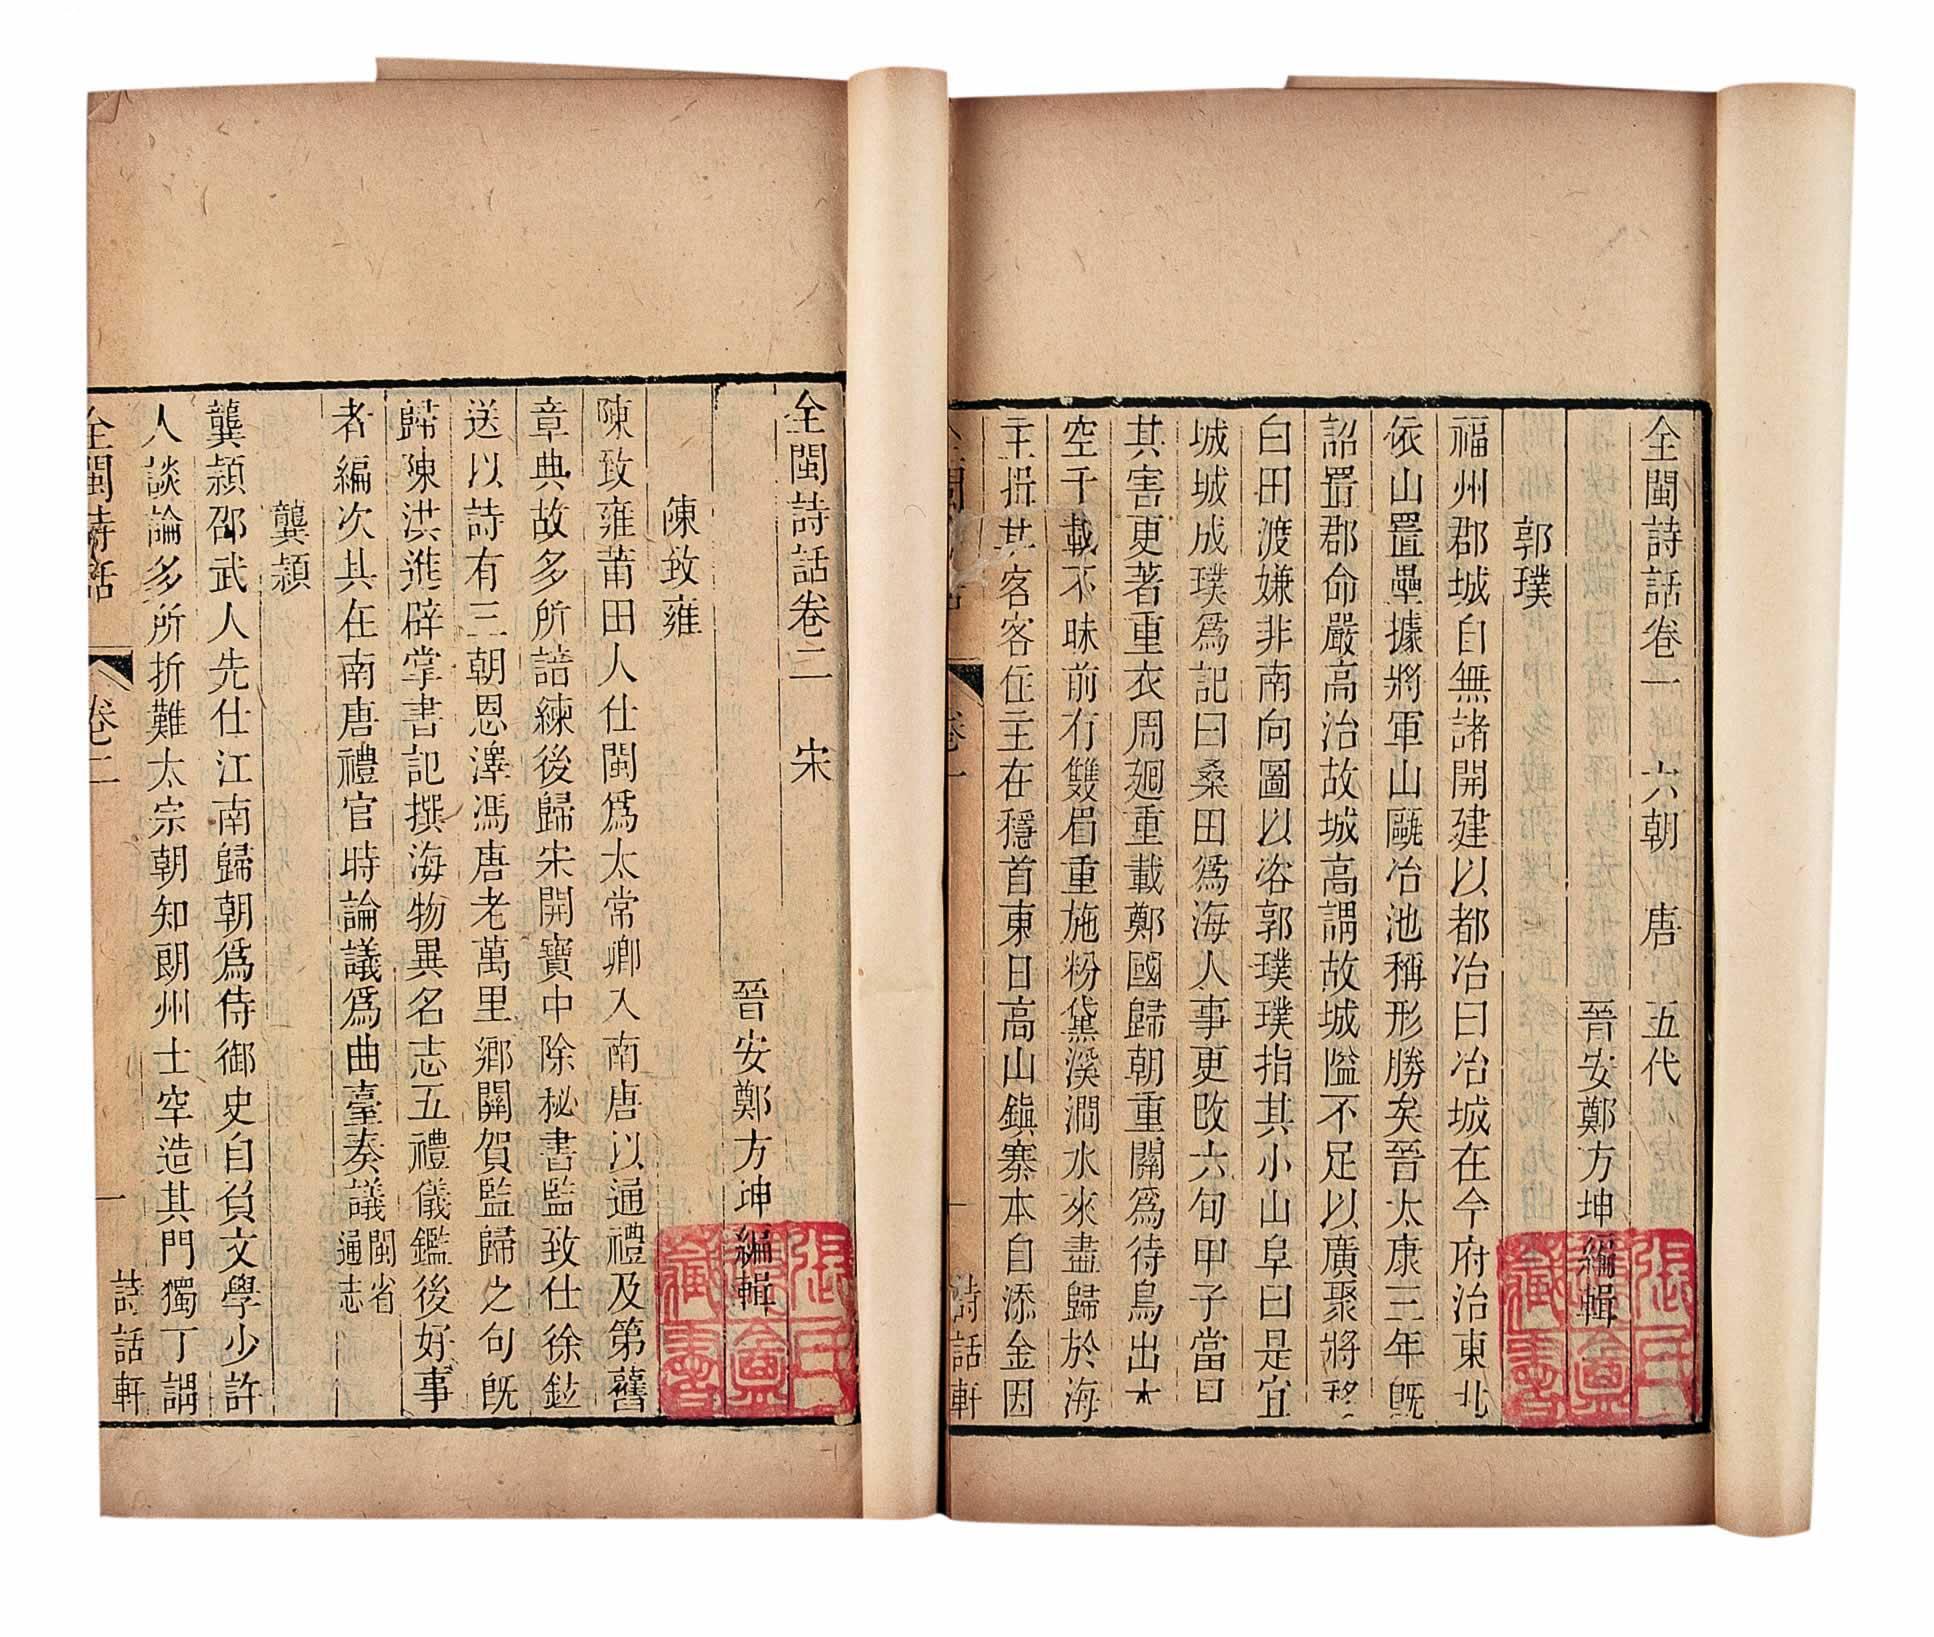 全閩詩話卷一 六朝 唐 五代
晉安鄭方坤編輯
郭璞
福州郡城自無諸開建以都冶曰冶城在今府治東北
依山置壘據將軍山甌冶池稱形勝矣晉太康三年既
詔置郡命嚴高治故城高謂故城隘不足以廣聚將移
白田渡嫌非南向圖以咨郭璞璞指其小山阜曰是宜
城城成璞爲記曰桑田爲海人事更改六旬甲子當日
其害更著重衣周廻重載鄭國歸朝重關爲待鳥出木
空千載不昧前有雙眉重施粉黛溪澗水來盡歸於海
主揖其客客住主在穩首東日高山鎮寨本自添金因
卷一
一
詩話軒
全閩詩話卷二 宋
晉安鄭方坤編輯
陳致雍
陳致雍莆田人仕閩爲太常卿入南唐以通禮及第舊
章典故多所諳練後歸宋開寶中除秘書監致仕徐鉉
送以詩有三朝恩澤馮唐老萬里鄉關賀監歸之句既
歸陳洪進辟掌書記撰海物異名志五禮儀鑑後好事
者編次其在南唐禮官時論議爲曲臺奏議 閩省通志
龔潁
龔潁邵武人先仕江南歸朝爲侍御史自負文學少許
人談論多所折難太宗朝知朗州士罕造其門獨丁謂
全閩詩話
卷二
一
詩話軒
張氏
藏書